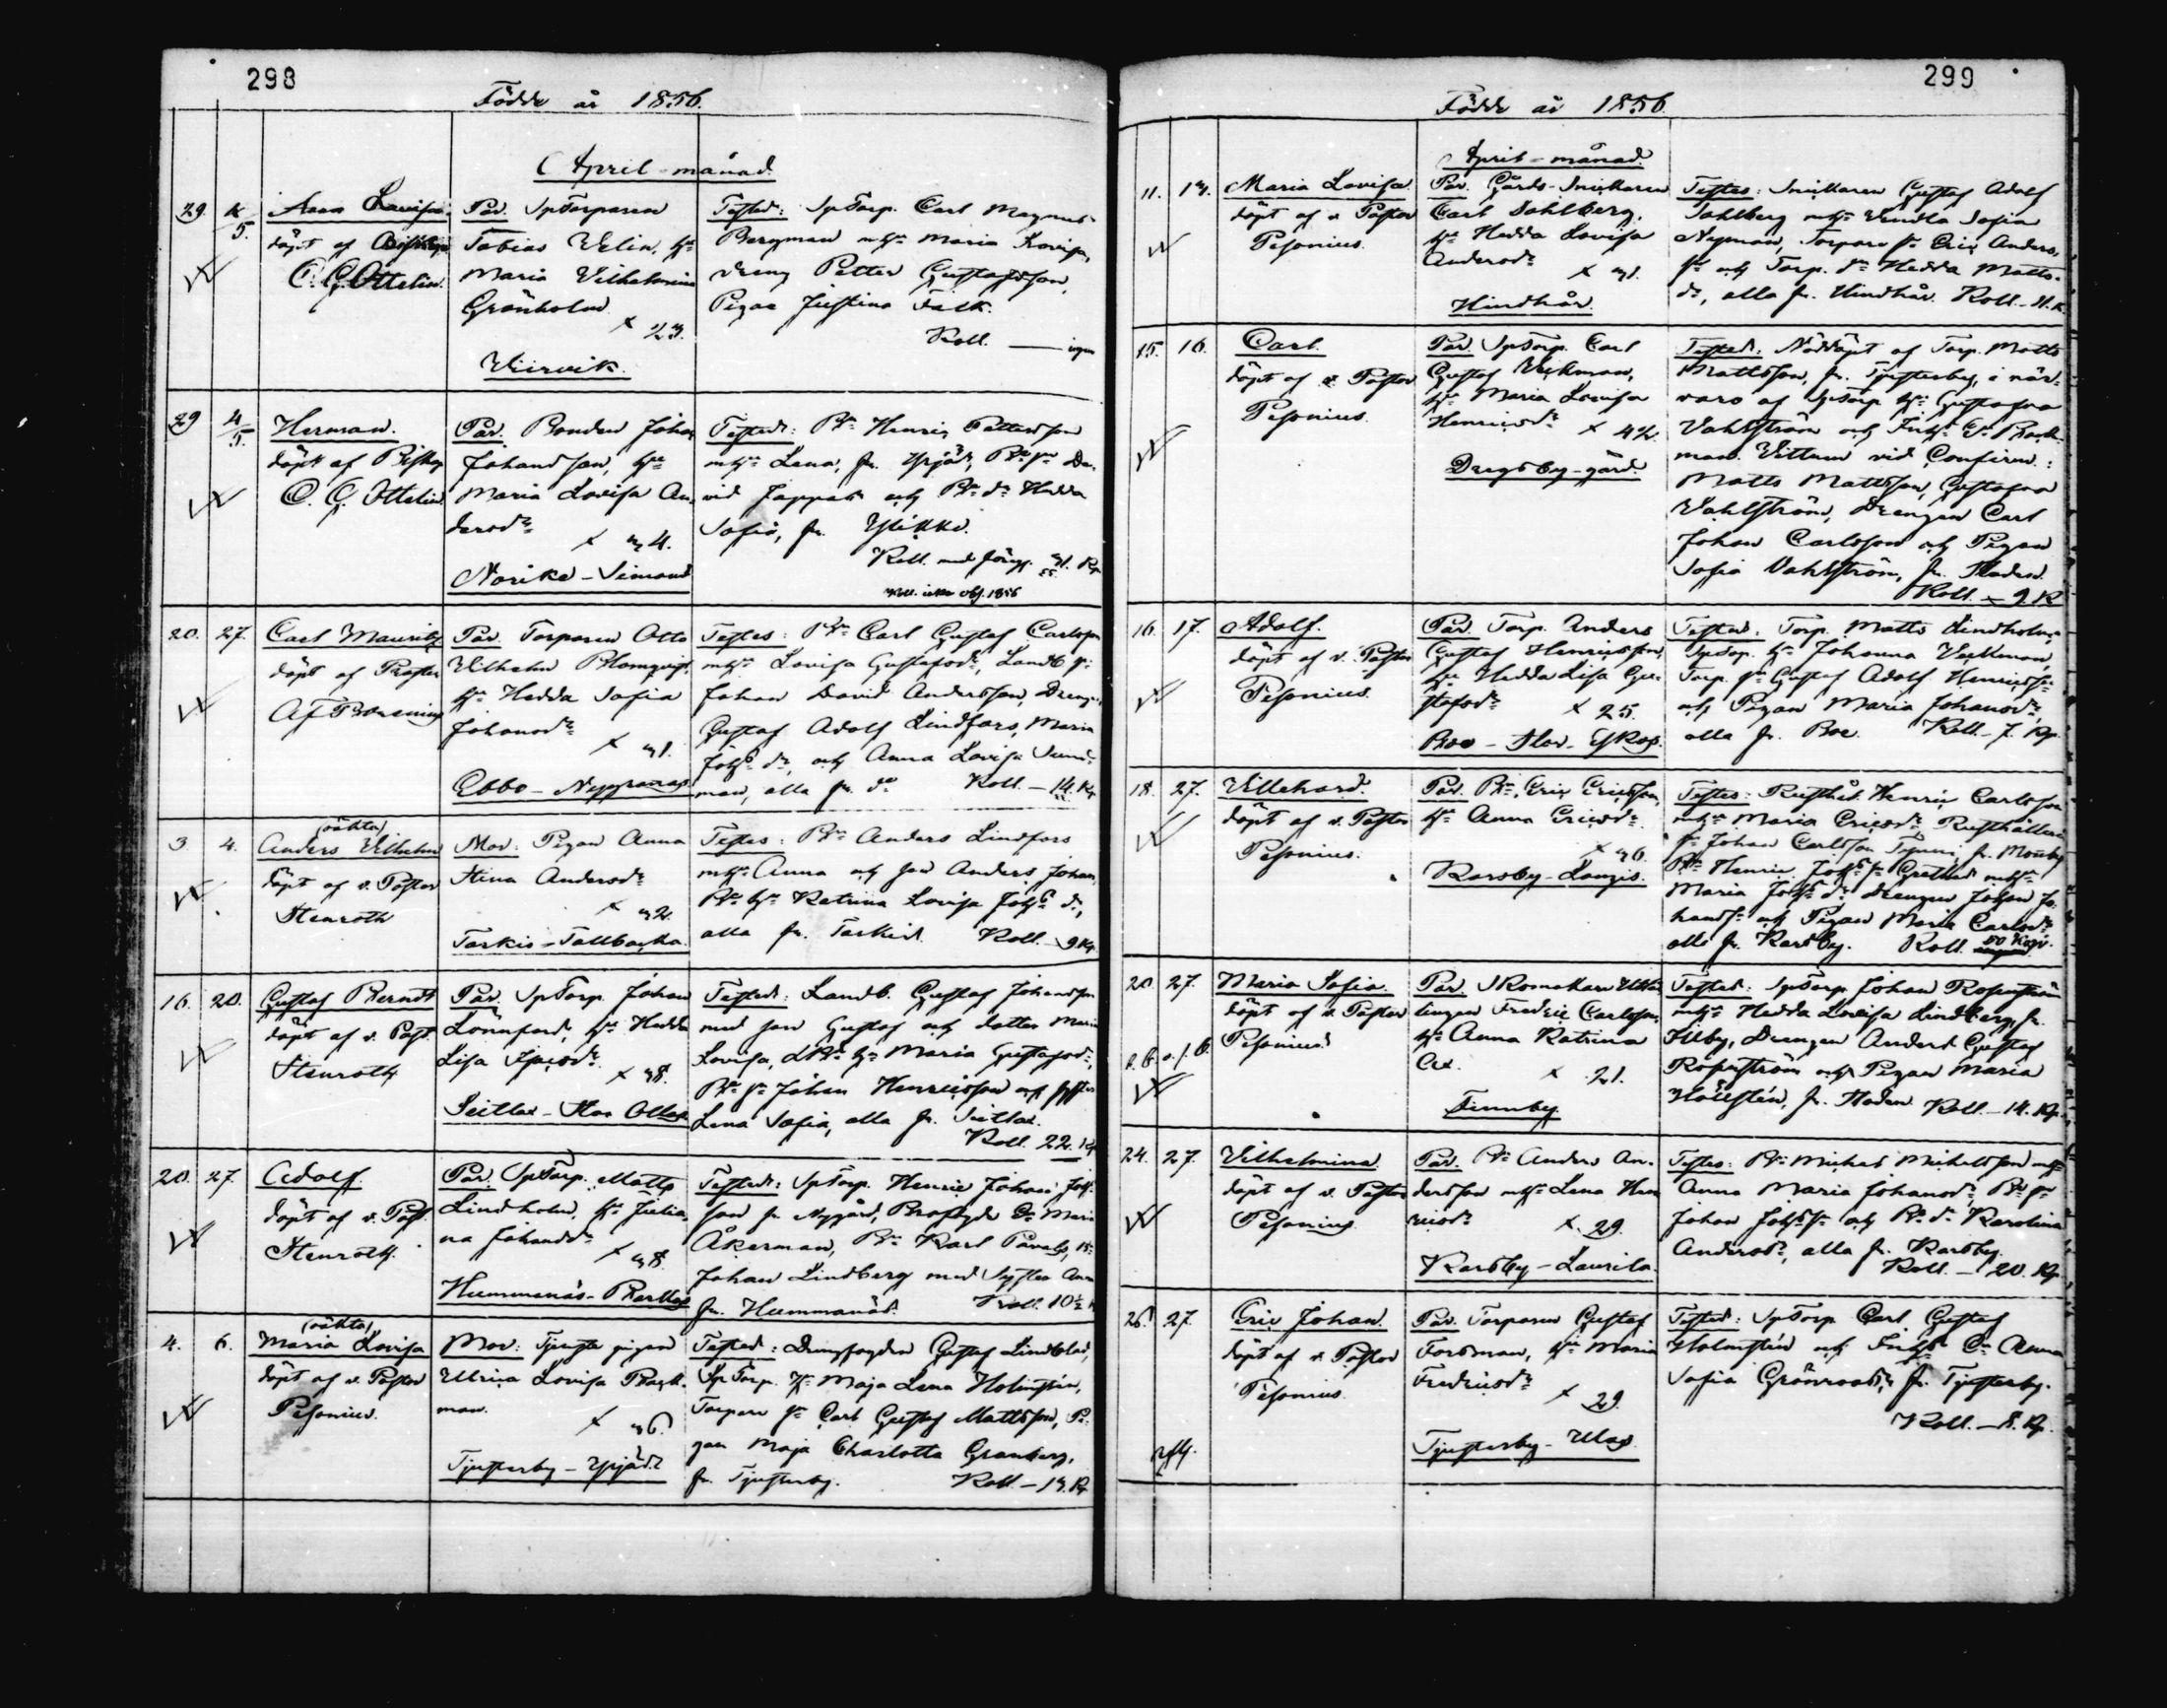 298
Födde år 1856.
April-månad
29. 4/5. Anna Lovisa.
döpt af Biskop
C. G. Ottelin.
Par. SpTorparen
Tobias Welin, hu
Maria Vilhelmina
Grönholm
x 23.
Wirvik.
Testes: SpTorp. Carl Magnus
Bergman mhu Maria Lovisa,
dreng Petter Gustafsson,
Pigan Justina Falk.
Koll. — ingen
29 4/5. Herman.
döpt af Biskop
C. G. Ottelin
Par. Bonden Johan
Johansson, hu
Maria Lovisa An-
dersdr
x 24.
Norike-Simons
Testes: Bn Henric Pettersson
mhu Lena, fr. Ypjäs, Bn sn Da-
vid Jappas och Bn dr Hedda
Sofia, fr. Ylikke.
Koll. med
Koll. icke obs. 1856
20. 27. Carl Mauritz
döpt af Proster
Af Brunér
Par. Torparen Otto
Vilhelm Blomqvist,
hu Hedda Sofia
Johansdr
x 21.
Ebbo-Nygrannas
Testes: Bn Carl Gustaf Carlsson
mhu Lovisa Gustafsdr, Landb sn
Johan David Andersson, Drengen
Gustaf Adolf Lindfors, Maria
Johs dr, och Anna Lovisa Sund-
man, alla fr. do Koll. — 14. Kp
3. 4. (oäkta)
Anders Vilhelm
döpt af v. Pastor
Stenroth
Mor: Pigan Anna
Stina Andersdr
x 22.
Tarkis-Tallbacka.
Testes: Bn Anders Lindfors
mhu Anna och son Anders Johan,
Bn hu Katrina Lovisa Johs dr,
alla fr. Tarkis. Koll. 9 Kp
16. 20. Gustaf Berndt
döpt af v. Past.
Stenroth
Par. SpTorp. Johan
Lönnfors, hu Hedda
Lisa
x 28.
Seitlax-Stor Ollas
Testes: Landb. Gustaf Johansson
med son Gustaf och dotter Maria
Lovisa, hu Maria Gustafsdr,
Bn sn Johan Henricsson och syster
Lena Sofia, alla fr. Seitlax.
Koll. 22. Kp
20. 27. Adolf.
döpt af v. Past.
Stenroth.
Par. SpTorp. Matts
Lindholm, hu Julia-
na Johansdr
x 28.
Hummanäs-Barkas
Testes: SpTorp. Henric Johan Johs-
son fr. Nygård, Maria
Åkerman, Bn Karl
Johan Lindberg med syster Anna
fr. Hummanäs. Koll. 10½ K
4. 6. (oäkta)
Maria Lovisa
döpt af v. Pastor
Pesonius.
Mor: Tjenste pigan
Ulrica Lovisa Back-
man.
x 26.
Tjusterby-Ypjäs
Testes: Drengfogden Gustaf Lindblad,
SpTorp. hu Maja Lena Holmstén,
Torpare sn Carl Gustaf Mattsson, Pi-
gan Maja Charlotta Granberg,
fr. Tjusterby. Koll. — 13. Kp
299
Födde år 1856.
April-månad.
11. 13. Maria Lovisa.
döpt af v. Pastor
Pesonius.
Par. Gårds-Snickaren
Carl Dahlberg,
hu Hedda Lovisa
Andersdr
x 21.
Hindhår.
Testes: Snickaren Gustaf Adolf
Dahlberg mhu Vendla Sofia
Nyman, Torpare sn Eric Anders-
sn och Torp. dr Hedda Matts-
dr, alla fr. Hindhår. Koll. — 11. K
15. 16. Carl.
döpt af v. Pastor
Pesonius.
Par. SpTorp. Carl
Gustaf Weckman,
hu Maria Lovisa
Henricsdr
x 42.
Drägsby-gård.
Testes: Nöddöpt af Torp. Matts
Mattsson, fr. Tjusterby, i när-
varo af SpTorp hu Gustafva
Vahlström och Inhs Ea Back-
man. Vittnen vid Confirm.:
Matts Mattsson, Gustafva
Vahlström, Drengen Carl
Johan Carlsson och Pigan
Sofia Vahlström, fr. Staden.
Koll. — 9. K
16. 17. Adolf.
döpt af v. Pastor
Pesonius.
Par. Torp. Anders
Gustaf Henricsson,
hu Hedda Lisa Gu-
stafsdr
x 25.
Boe-Stor-Eskas.
Testes. Torp. Matts Lindholm,
SpTorp. hu Johanna Weckman,
Torp. sn Gustaf Adolf Henricssn
och Pigan Maria Johansdr,
alla fr. Boe. Koll. — 7. Kp.
18. 27. Villehard.
döpt af v. Pastor
Pesonius.
Par. Bn Eric Ericsson,
hu Anna Ericsdr
x 26.
Karsby-Longis.
Testes: Rusthål. Henric Carlsson
mhu Maria Ericsdr, Rusthållare
sn Johan Carlsson fr. Monby
Bn Henric Johs sn mhu
Maria Johs dr Drengen Johan Jo-
hanssn och Pigan Maria Carlsdr
alla fr. Karsby. Koll. 50 Kop.
20. 27. Maria Sofia.
döpt af v. Pastor
Pesonius
Par. Skomakare
Fredric Carlsson,
hu Anna Katrina
Ax.
x 21.
Finnby.
Testes: SpTorp Johan Rosenström
mhu Hedda Lovisa Lindberg, fr.
Illby, Drengen Anders Gustaf
Rosenström och Pigan Maria
Hollstén, fr. Staden Koll. — 14. Kp.
24. 27. Vilhelmina.
döpt af v. Pastor
Pesonius.
Par. Bn Anders An-
dersson mhu Lena Hen-
ricsdr
x 29.
Karsby-Laurila.
Testes: Bn Michel Michelsson mhu
Anna Maria Johansdr, Bn sn
Johan Johs sn och Bn dr Karolina
Andersdr, alla fr. Karsby.
Koll. — 20. Kp.
26. 27. Eric Johan.
döpt af v. Pastor
Pesonius.
Par. Torparen Gustaf
Forsman, hu Maria
Fredricsdr
x 29.
Tjusterby-Ulas.
Testes: SpTorp Carl Gustaf
Holmstén och Inhs Ea Anna
Sofia Grönroos, fr. Tjusterby.
Koll. — 8. Kp.